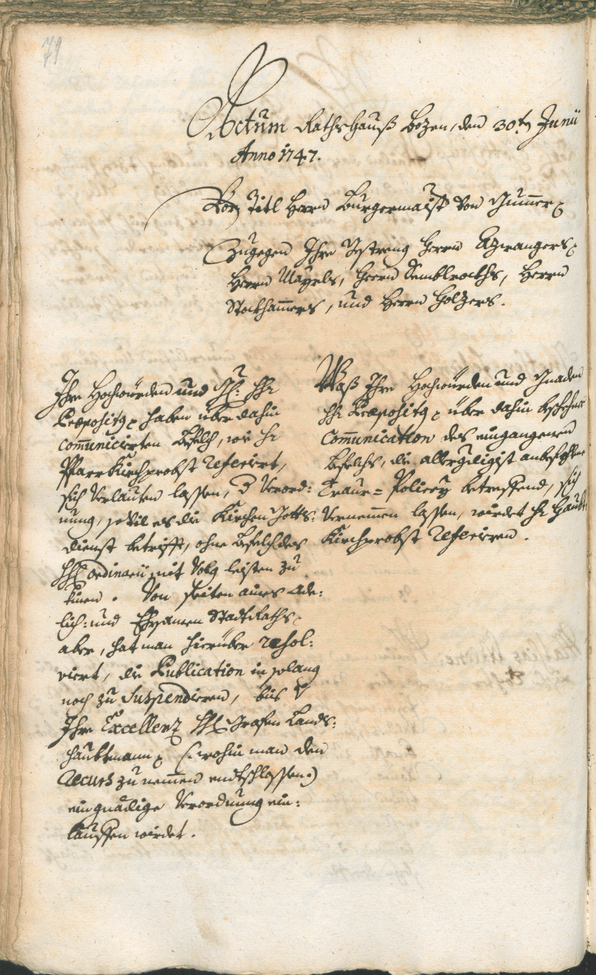 71
Actum Rathshauß Bozen, den 30.t Junii
Anno 1747.
Vor Titl Herrn Burgermaist. von Gummer
Zugegen Ihro Vestreng Herrn
Herrn Mayrls, Herrn Semblrochs, Herrn
Stockhamers, und Herrn Holzers.
Ihro Hochwürden und Gn: H:
Præposity haben über dahin
communicirten Befelch, wie H:
Pfarr Kirchprobst referirt,
sich verlauten lassen, d Verord:
nung, sovil es die Kirchen Gotts:
dienst betrifft, ohne Befelch des
H: ordinarii nit Volg leisten zu
kinen. Von seiten aines Ade:
lich: und Ehrsamen Stadt Raths
aber, hat man hierüber resol:
viert, die Publication in solang
noch zu suspendieren, bis v
Ihro Excellenz H: Grafen Lands:
haubtmann (: wohin man den
Recurs zu nemmen endtschlossen :)
ein gnädige Verordnung ein:
lauffen wirdet.
Waß Ihro Hochwürden und Gnaden
H: Præposity über dahin beschehene
Communication des eingangenen
Befelchs, die allergnedigist anbefohlne
Traur= Policey betreffend, sich
vernemmen lassen, wirdet H:
Kirchprobst referiren.